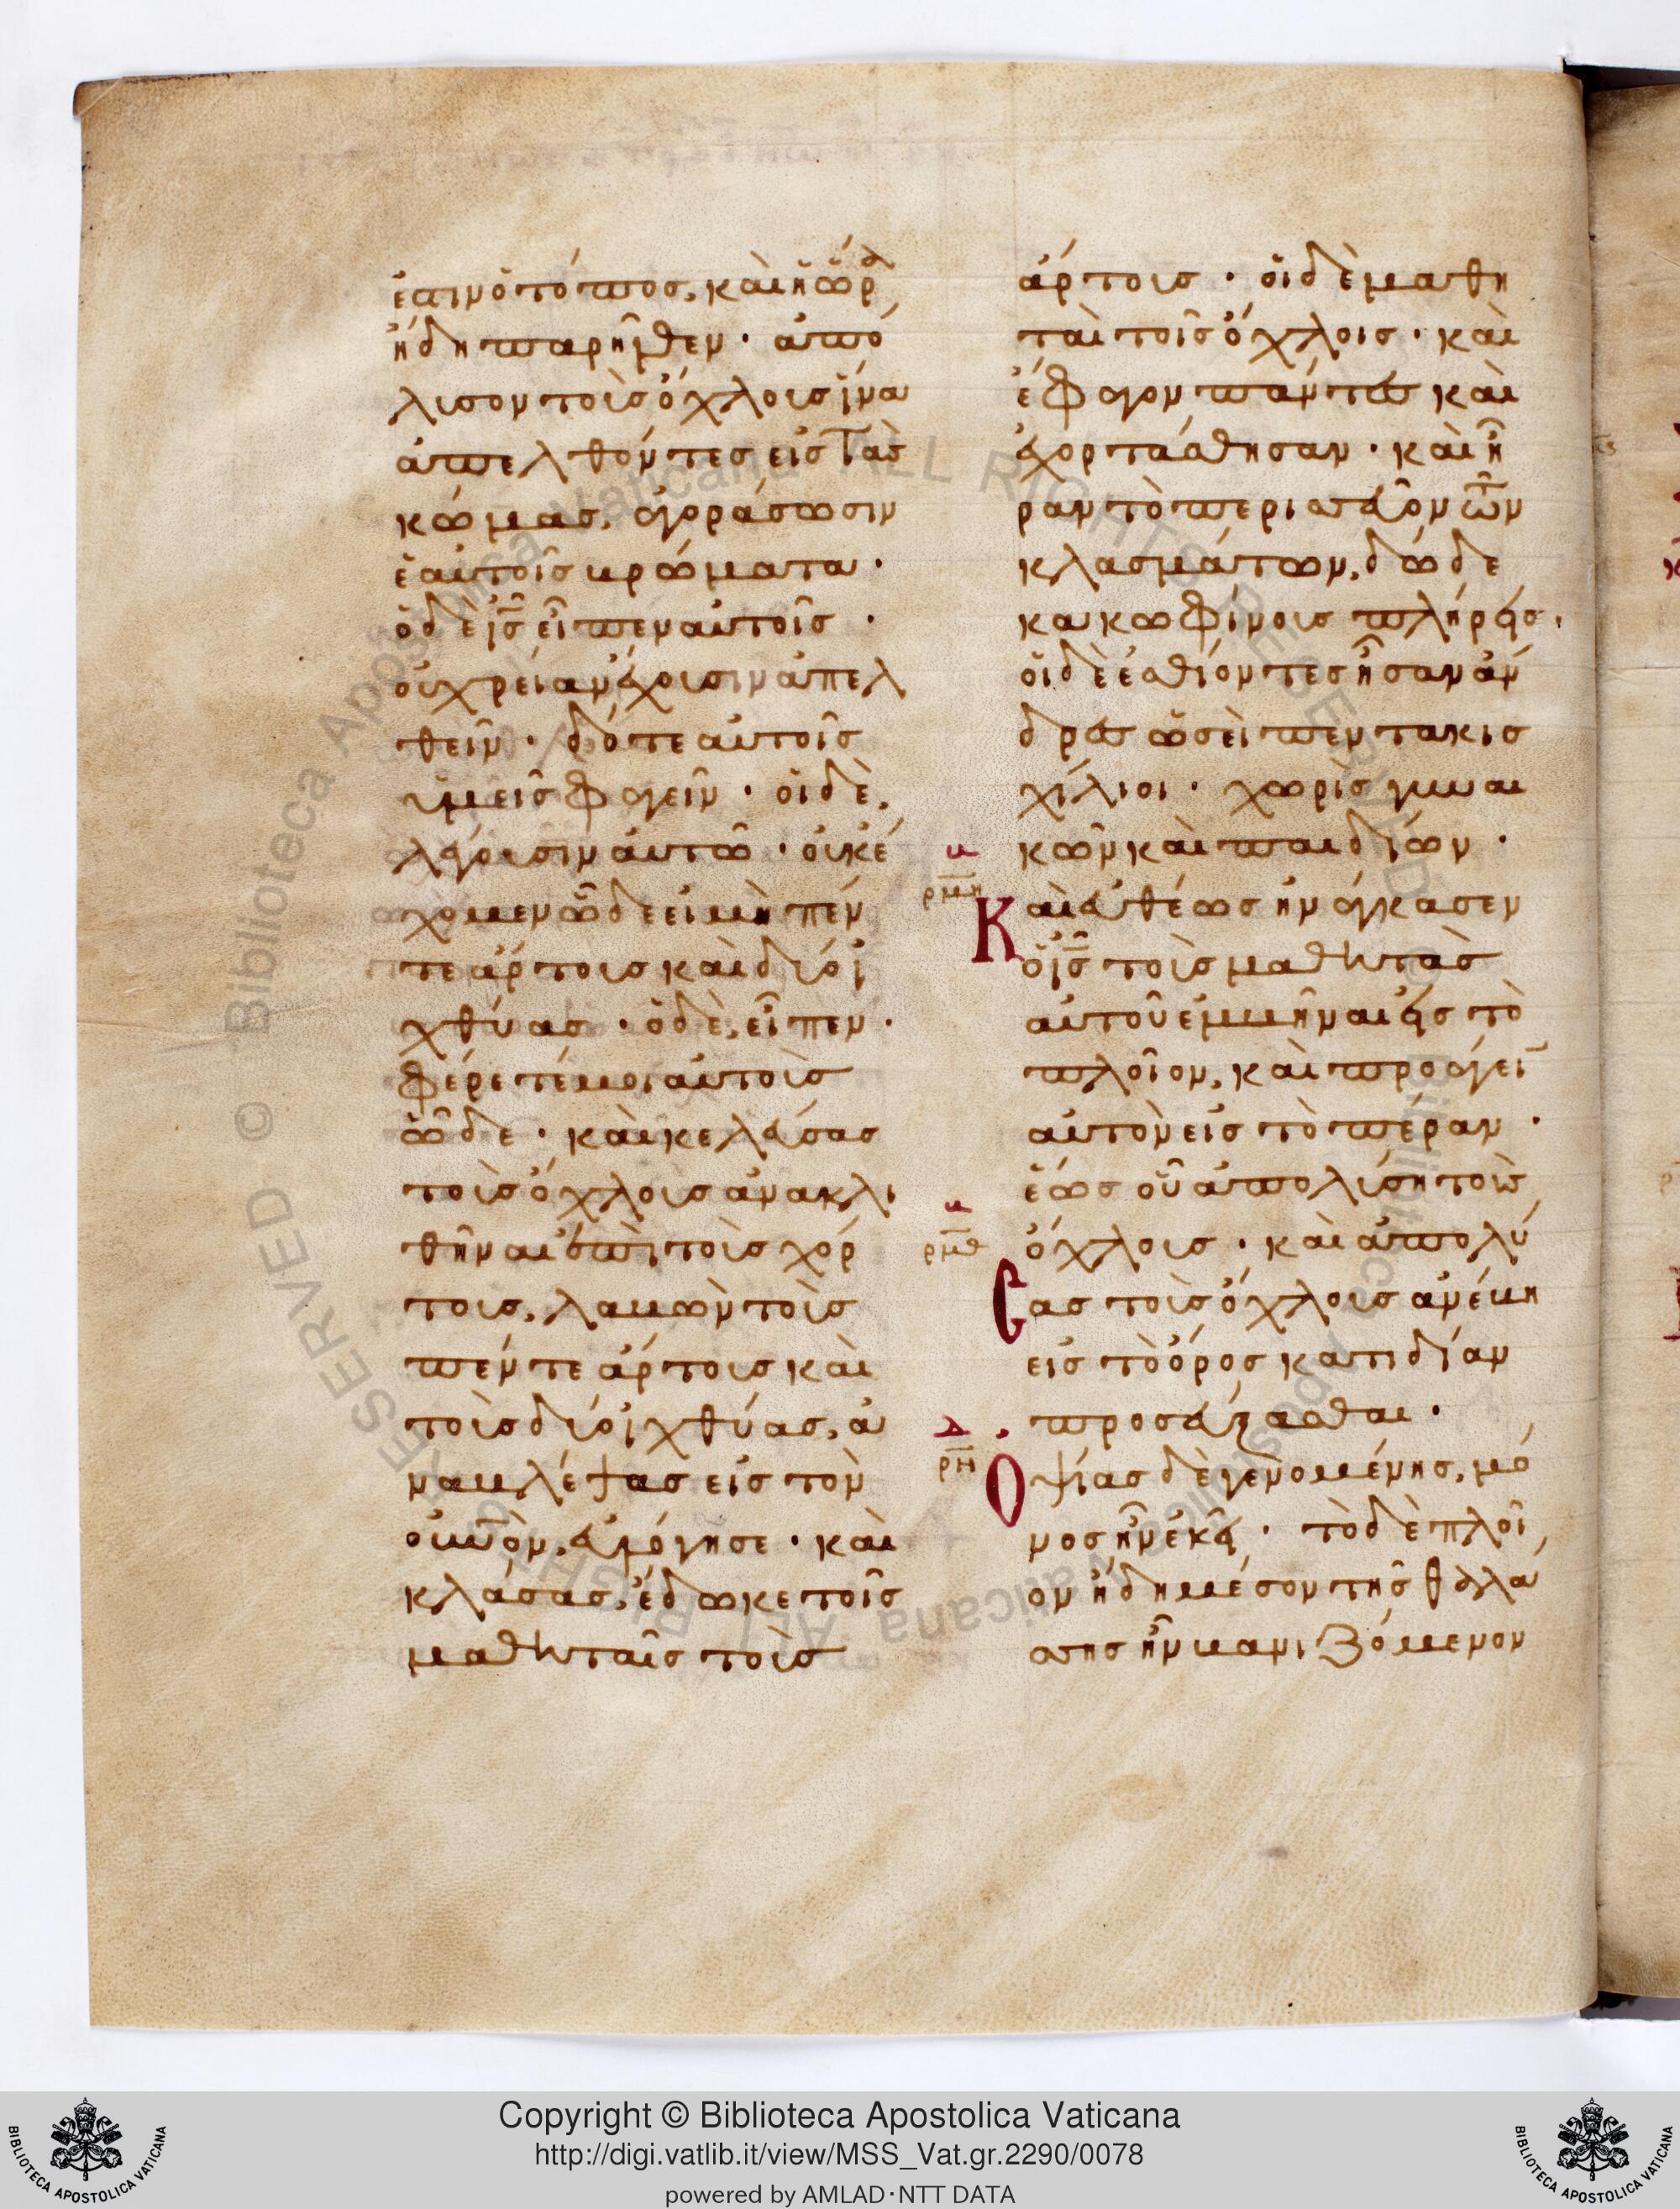 ἐστιν ὁ τόπος, καὶ ἡ ὥρα
ἤδη παρῆλθεν· ἀπό
λυσον τοὺς ὄχλους ἵνα
ἀπελθόντες εἰς τὰς
κώμας, ἀγοράσωσιν
ἑαυτοῖς βρώματα·
ὁ δὲ ις εἶπεν αὐτοῖς·
οὐ χρείαν ἔχουσιν ἀπελ
θεῖν· δότε αὐτοῖς
ὑμεῖς φαγεῖν· οἱ δὲ,
λέγουσιν αὐτῶ· οὐκ έ
χομεν ὧδε εἰ μὴ πέν
τε ἄρτους καὶ δύο ἰ
χθύας· ὁ δὲ, εἶπεν·
φέρετέ μοι αὐτοὺς
ὧδε· καὶ κελεύσας
τοὺς ὄχλους ἀνακλι
θῆναι ἐπὶ τοὺς χόρ
τους, λαβὼν τοὺς
πέντε ἄρτους καὶ
τοὺς δύο ἰχθύας, ἀ
ναβλέψας εἰς τὸν
οὐνὸν, εὐλόγησε· καὶ
κλάσας, ἔδωκε τοῖς
μαθηταῖς τοὺς
ἄρτους· οἱ δὲ μαθη
ταὶ τοῖς ὄχλοις· καὶ
ἔφαγον πάντες καὶ
ἐχορτάσθησαν· καὶ ἦ
ραν τὸ περισσεῦον τῶν
κλασμάτων, δώδε
κα κοφίνους πλήρεις·
οἱ δὲ ἐσθίοντες ἦσαν ἄν
δρες ὡσεὶ πεντακισ
χίλιοι· χωρὶς γυναι
κῶν καὶ παιδίων·
ρμη
Καὶ εὐθέως ἠνάγκασεν
ὁ ις τοὺς μαθητὰς
αὐτοῦ ἐμβῆναι εἰς τὸ
πλοῖον, καὶ προάγειν
αὐτὸν εἰς τὸ πέραν·
ἕως οὗ ἀπολύση τοὺς
ρμθ
ὄχλους· καὶ ἀπολύ
σας τοὺς ὄχλους ἀνέβη
εἰς τὸ ὄρος κατιδίαν
προσεύξασθαι·
ρν
Ὀψίας δὲ γενομένης, μό
νος ἦν ἐκεῖ· τὸ δὲ πλοῖ
ον ἤδη μέσον τῆς θαλά
σσης ἦν βασανιζόμενον
Copyright © Biblioteca Apostolica Vaticana
http://digi.vatlib.it/view/MSS_Vat.gr.2290/0078
powered by AMLAD·NTT DATA
BIBLIOTECA APOSTOLICA VATICANA
BIBLIOTECA APOSTOLICA VATICANA